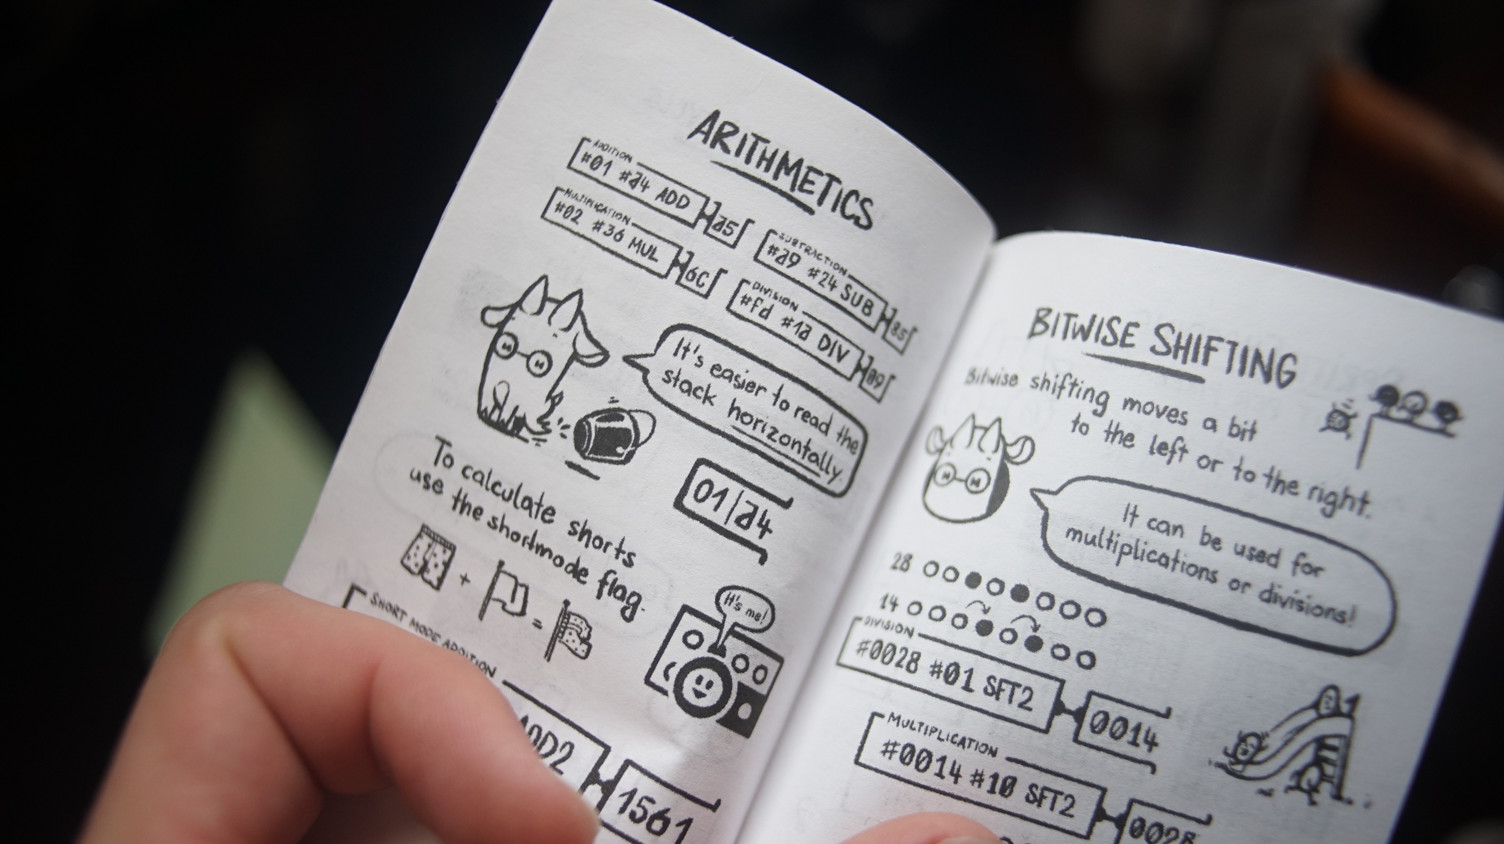 ARITHMETICS
ADDITION
#01 #a4 ADD
a5
SUBTRACTION
#a9 #24 SUB
85
MULTIPLICATION
#02 #36 MUL
6C
DIVISION
#fd #1a DIV
09
It's easier to read the
stack horizontally.
01/a4
To calculate shorts
use the shortmode flag.
+
=
It's me!
SHORT MODE ADDITION
ADD2
1561
BITWISE SHIFTING
Bitwise shifting moves a bit
to the left or to the right.
It can be used for
multiplications or divisions!
28
14
DIVISION
#0028 #01 SFT2
0014
MULTIPLICATION
#0014 #10 SFT2
0028